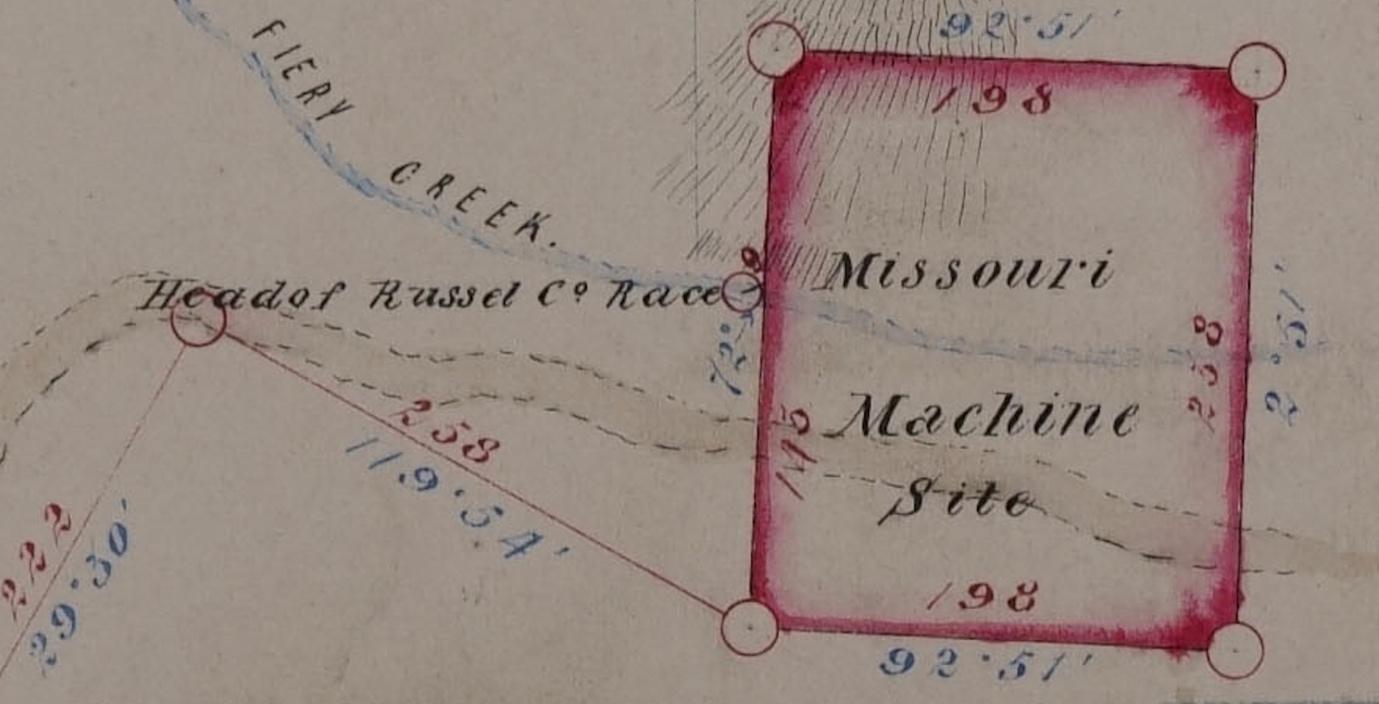 FIERY CREEK.
92°51'
198
Head of Russel Cº Race
9
72°
Missouri
Machine
Site
145
238
2°51'
258
119°54'
222
29°30'
198
92°51'